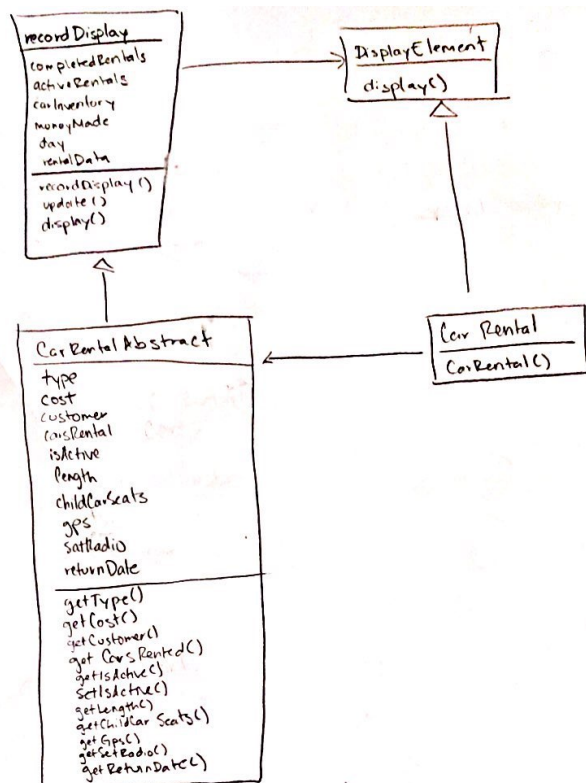 recordDisplay
completedRentals
activeRentals
carInventory
moneyMade
day
rentalData
recordDisplay()
update()
display()
DisplayElement
display()
CarRentalAbstract
type
cost
customer
carsRental
isActive
length
childCarSeats
gps
satRadio
returnDate
getType()
getCost()
getCustomer()
get CarsRented()
getIsActive()
setIsActive()
getLength()
getChildCar Seats()
getGps()
getSetRadio()
getReturnDate()
Car Rental
CarRental()